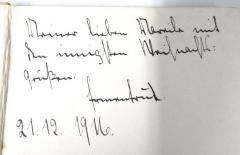 Meiner lieben Mareile mit
den innigsten Weihnachts-
grüßen.
Irmentrud.
21.12.1916.